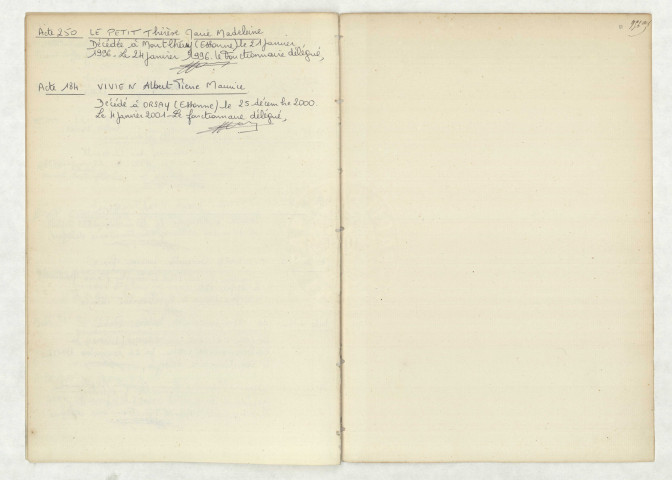 Acte 250 LE PETIT Thérèse Marie Madeleine
Décédée à Montlhéry (Essonne) le 21 Janvier
1996. Le 24 janvier 1996. Le fonctionnaire délégué,
Acte 184 VIVIEN Albert Pierre Maurice
Décédé à ORSAY (Essonne) le 25 décembre 2000
Le 4 janvier 2001 - Le fonctionnaire délégué,